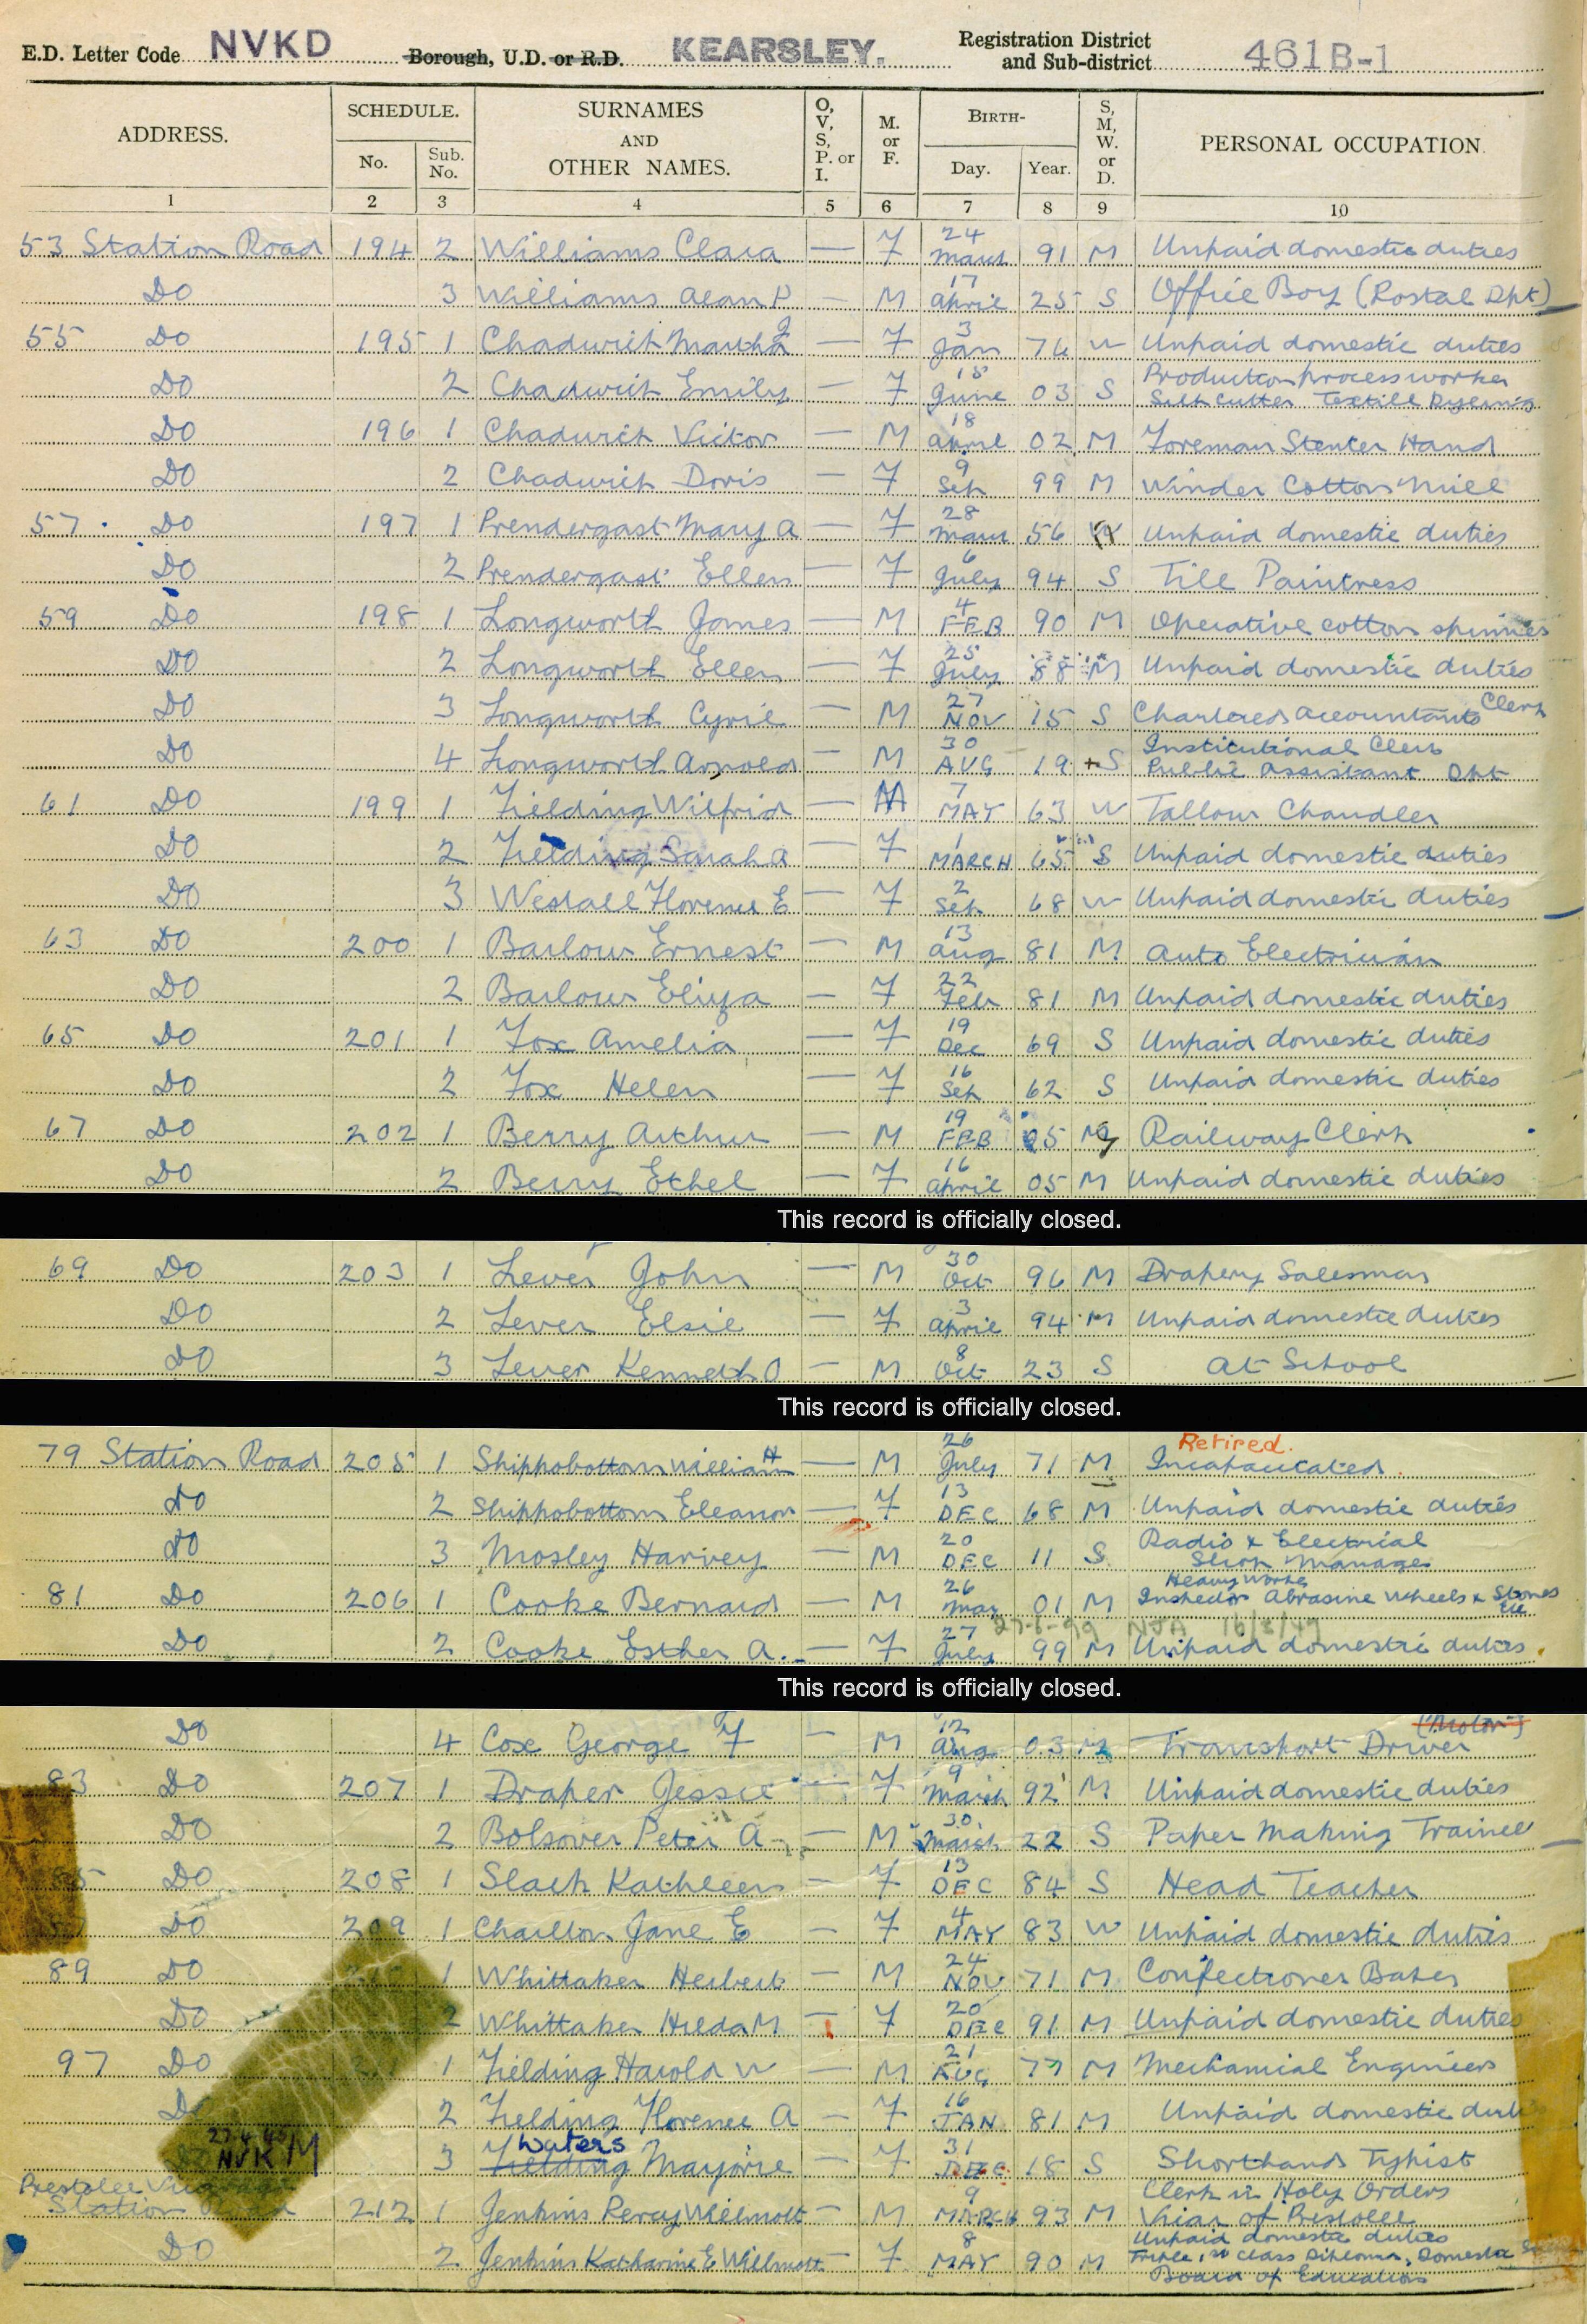 E.D. Letter Code NVKD Borough, U.D. or R.D. KEARSLEY. Registration District and Sub-district 461B-1
ADDRESS. SCHEDULE. No. Sub. No. SURNAMES AND OTHER NAMES. O, V, S, P. or I. M. or F. BIRTH- Day. Year. S, M, W. or D. PERSONAL OCCUPATION.
1 2 3 4 5 6 7 8 9 10
53 Station Road 194 2 Williams Clara — F 24 March 91 M Unpaid domestic duties
Do 3 Williams Alan P — M 17 April 25 S Office Boy (Postal Dpt)
55 Do 195 1 Chadwick Martha — F 3 Jan 76 W Unpaid domestic duties
Do 2 Chadwick Emily — F 15 June 03 S Production process worker Silk Cutter Textile Dyeing
Do 196 1 Chadwick Victor — M 18 April 02 M Foreman Stenter Hand
Do 2 Chadwick Doris — F 9 Sep 99 M Winder Cotton Mill
57 Do 197 1 Prendergast Mary A — F 28 March 56 W Unpaid domestic duties
Do 2 Prendergast Ellen — F 6 July 94 S Tile Paintress
59 Do 198 1 Longworth James — M 4 FEB 90 M Operative cotton spinner
Do 2 Longworth Ellen — F 25 July 88 M Unpaid domestic duties
Do 3 Longworth Cyril — M 27 NOV 15 S Chartered Accountants Clerk
Do 4 Longworth Arnold — M 30 AUG 19 S Institutional Clerk Public Assistant Dpt
61 Do 199 1 Fielding Wilfrid — M 7 MAY 63 W Tallow Chandler
Do 2 Fielding Sarah A — F 1 MARCH 65 S Unpaid domestic duties
Do 3 Westall Florence E — F 2 Sep 68 W Unpaid domestic duties
63 Do 200 1 Barlow Ernest — M 13 Aug 81 M Auto Electrician
Do 2 Barlow Eliza — F 22 Feb 81 M Unpaid domestic duties
65 Do 201 1 Fox Amelia — F 19 Dec 69 S Unpaid domestic duties
Do 2 Fox Helen — F 16 Sep 62 S Unpaid domestic duties
67 Do 202 1 Berry Arthur — M 19 FEB 05 M Railway Clerk
Do 2 Berry Ethel — F 16 April 05 M Unpaid domestic duties
This record is officially closed.
69 Do 203 1 Lever John — M 30 Oct 96 M Drapery Salesman
Do 2 Lever Elsie — F 3 April 94 M Unpaid domestic duties
Do 3 Lever Kenneth O — M 8 Oct 23 S At School
This record is officially closed.
79 Station Road 205 1 Shippobottom William H — M 26 July 71 M Retired. Incapacitated
Do 2 Shippobottom Eleanor — F 13 DEC 68 M Unpaid domestic duties
Do 3 Mosley Harvey — M 20 DEC 11 S Radio & Electrial Shop Manager
81 Do 206 1 Cooke Bernard — M 26 May 01 M Heavy Worker Inspector Abrasive Wheels & Stones Etc
27-6-99 NJA 16/3/49
Do 2 Cooke Esther A. — F 27 July 99 M Unpaid domestic duties
This record is officially closed.
Do 4 Cox George F — M 12 Aug 03 M Transport Driver (Motor)
83 Do 207 1 Draper Jessie — F 9 March 92 M Unpaid domestic duties
Do 2 Bolsover Peter A — M 30 March 22 S Paper Making Trainee
85 Do 208 1 Slack Kathleen — F 13 DEC 84 S Head Teacher
Do 209 1 Charlton Jane E — F 4 MAY 83 W Unpaid domestic duties
89 Do 1 Whittaker Herbert — M 24 NOV 71 M Confectioner Baker
Do 2 Whittaker Hilda M — F 20 DEC 91 M Unpaid domestic duties
97 Do 1 Fielding Harold W — M 21 AUG 77 M Mechanical Engineer
Do 2 Fielding Florence A — F 16 JAN 81 M Unpaid domestic duties
NVKM 3 Fielding Waters Marjorie — F 31 DEC 18 S Shorthand Typist
Prestolee Vicarage Station Road 212 1 Jenkins Percy Willmott — M 9 MARCH 93 M Clerk in Holy Orders Vicar of Prestolee
Do 2 Jenkins Katharine E Willmott — F 8 MAY 90 M Unpaid domestic duties Triple, 1st Class Diploma, Domestic Board of Education